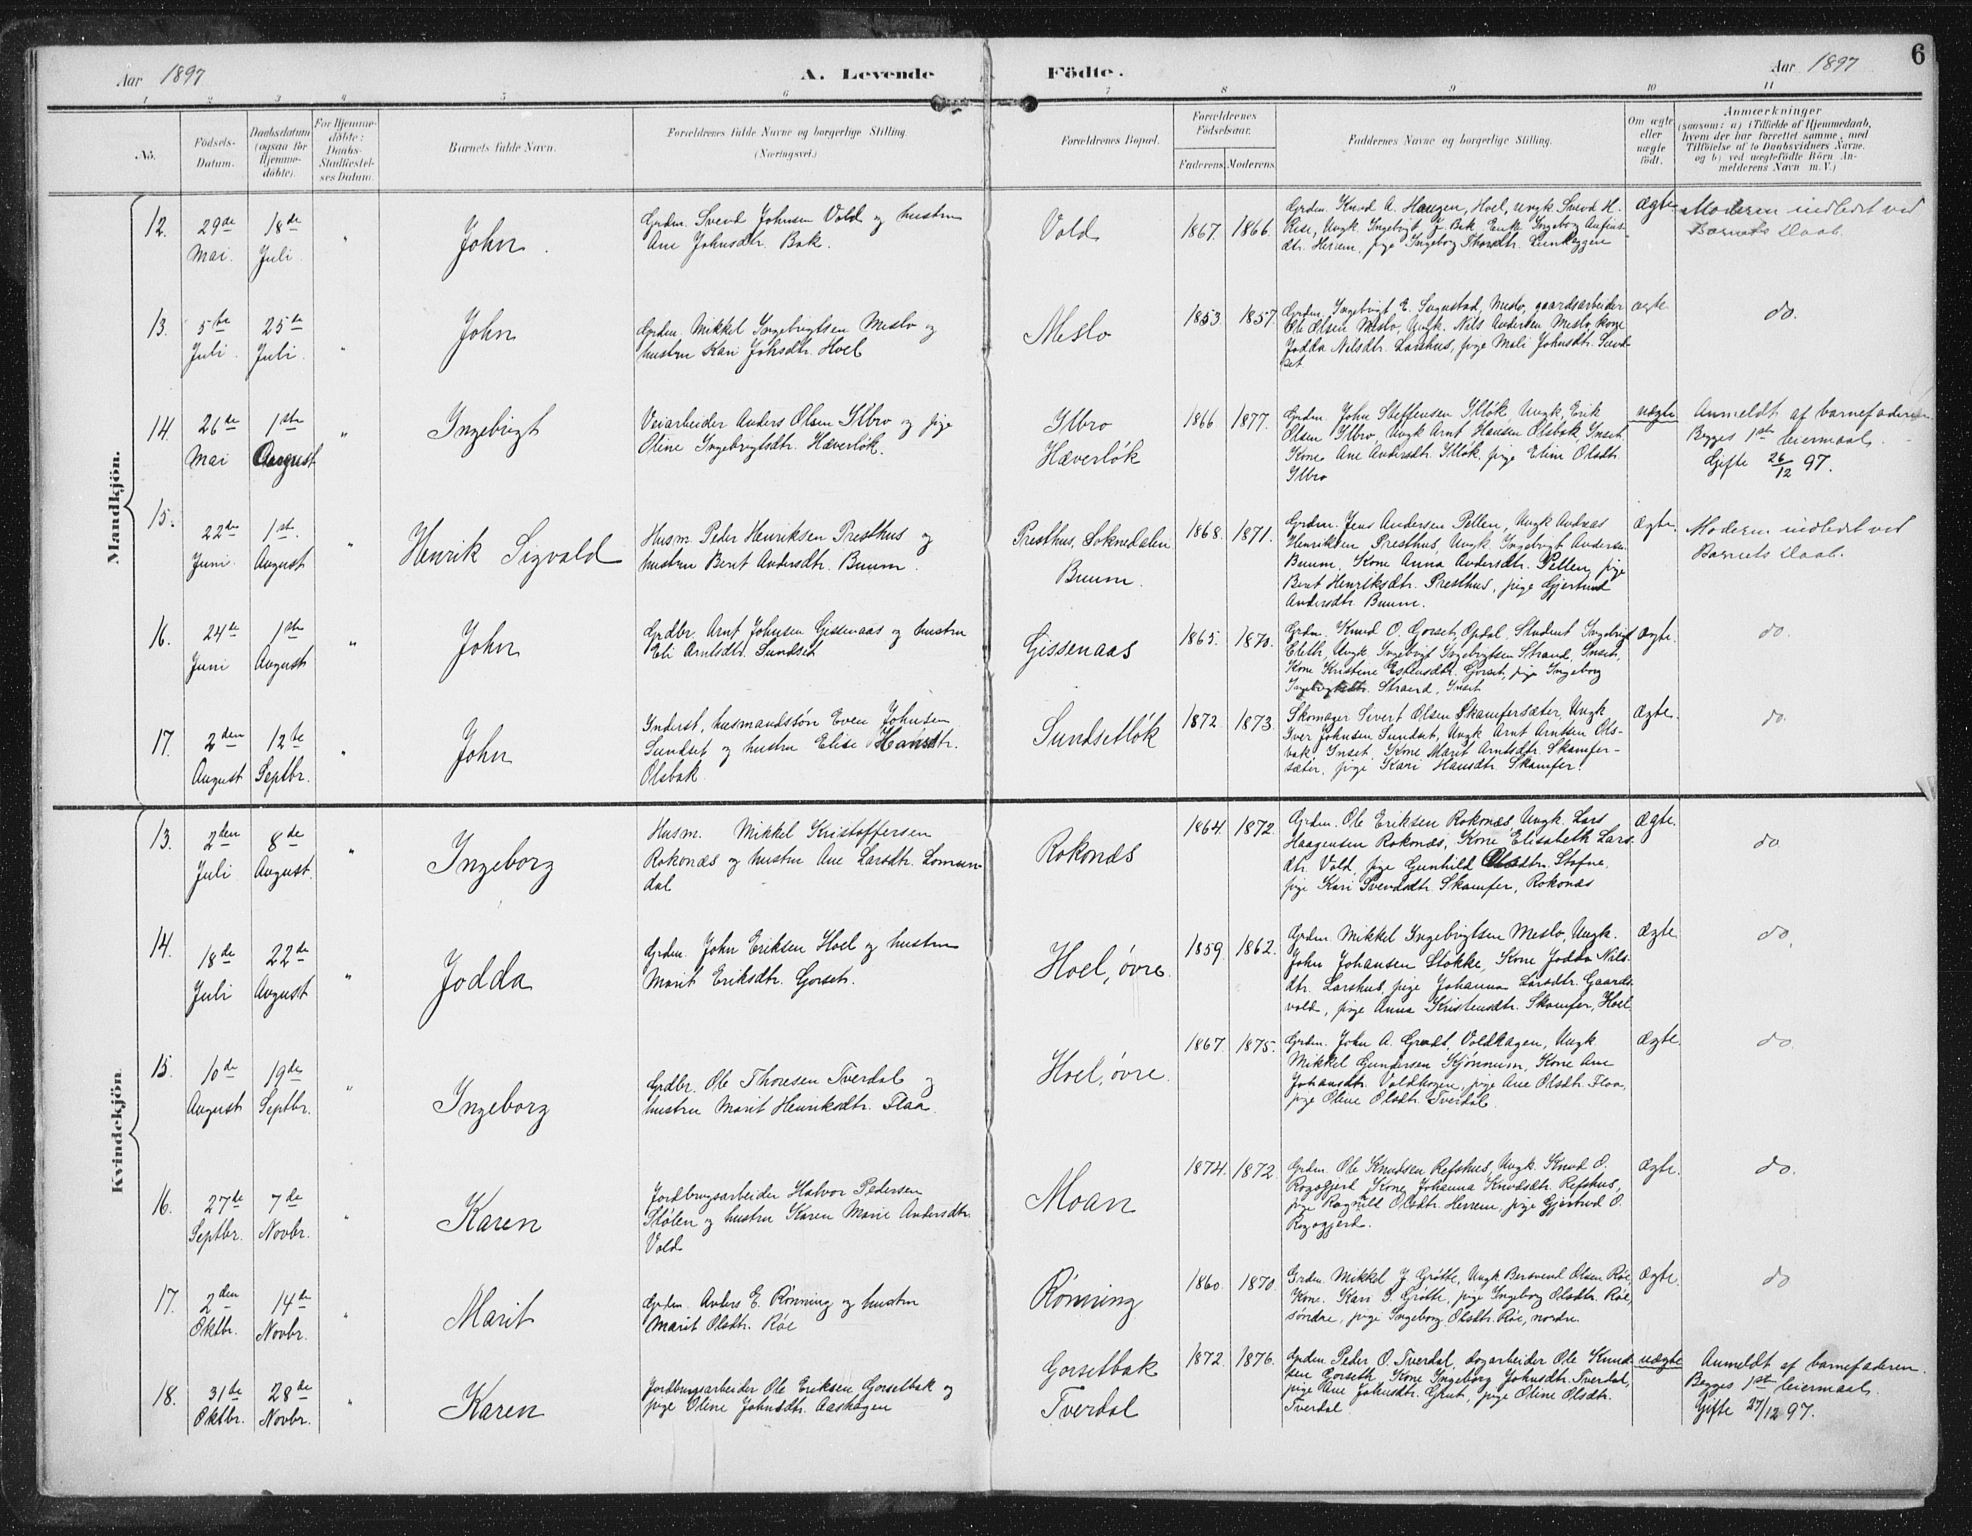 6
Aar 1897
A. Levende Födte.
Aar 1897
1 2 3 4 5 6 7 8 9 10 11
No.
Födsels-Datum.
Daabsdatum (ogsaa for Hjemme-döbte).
For Hjemme-döbte: Daabs-Stadfæstel-ses Datum.
Barnets fulde Navn.
Forældrenes fulde Navne og borgerlige Stilling. (Næringsvei.)
Forældrenes Bopæl.
Forældrenes Födselsaar.
Faderens. Moderens.
Faddernes Navne og borgerlige Stilling.
Om ægte eller uægte födt.
Anmærkninger
(saasom: a) i Tilfælde af Hjemmedaab,
hvem der har forrettet samme, med
Tilföielse af to Daabsvidners Navne.
og b) ved uægtefödte Börn An-
melderens Navn m. V.)
Mandkjön.
12. 29de Mai. 18de Juli. " John.
Grdm. Svend Johnsen Vold og hustru
Ane Johnsdtr. Bak.
Vold
1867. 1866.
Grdm. Knud A. Haugen, Hoel, Ungk. Svend H.
Rise, Ungk. Ingebrigt J. Bak, Enke Ingeborg
dtr. Herrem, pige Ingeborg
ægte
Moderen indledt ved
Barnets Daab.
13. 5te Juli. 25de Juli. " John
Grdm. Mikkel Ingebrigtsen Meslo og
hustru Kari Johsdtr. Hoel
Meslo
1853 1857.
Grdm. Ingebrigt E. Meslo, gaardsarbeider
Ole Olsen Meslo, Ungk. Nils Andersen Meslo, kone
Jodda Nilsdtr. Larshus, pige Mali Johnsdtr. Sund-
set
ægte
do.
14. 26de Mai 1ste August " Ingebrigt
Veiarbeider Anders Olsen Ilbro og pige
Oline Ingebrigtsdtr. Hæverløk.
Ilbro
Hæverløk
1866 1877.
Grdm. John Steffensen Illøk, Ungk. Erik
Olsen Ilbro, Ungk Arnt Hansen Olsbak, Inset,
Kone Ane Andersdtr. Illøk, pige Eline Olsdtr.
Ilbro
uægte
Anmeldt af barnefaderen.
Begges 1ste leiermaal.
Gifte 26/12 97.
15. 22de Juni. 1ste August " Henrik Sigvald
Husm. Peder Henriksen Presthus og
hustru Berit Andersdtr. Buum.
Presthus, Soknedalen
Buum.
1868. 1871.
Grdm. Jens Andersen Pellen, Ungk Andreas
Henriksen Presthus, Ungk. Ingebrigt Andersen
Buum, Kone Anna Andersdtr. Pellen, pige
Berit Henriksdtr. Presthus, pige Gjertrud
Andersdtr. Buum.
Ægte.
Moderen indledt ved
Barnets Daab.
16. 24de Juni 1ste August. " John
Grdbr. Arnt Johnsen Gissenaas og hustru
Eli Arntsdtr. Sundset
Gissenaas
1865. 1870.
Grdm. Knud O. Gorset, Opdal, Student Ingebrigt
Ungk. Ingebrigt Ingebrigtsen Strand, Inset,
Kone Kristine Estensdtr. Gorset, pige Ingeborg
Ingebrigtsdtr. Strand, Inset
Ægte.
do.
17. 2den August 12te Septbr. " John
Inderst, husmandssøn Even Johnsen
Sundset og hustru Elise Hansdtr.
Olsbak.
Sundsetløk
1872 1873.
Skomager Sivert Olsen Skamfersæter, Ungk
Iver Johnsen Sundset, Ungk Arnt Arntsen Ols-
bak, Inset, Kone Marit Arntsdtr. Skamfer-
sæter, pige Kari Hansdtr. Skamfer.
Ægte.
do.
Kvindekjön
13. 2den Juli 8de August. " Ingeborg
Husm. Mikkel Kristoffersen
Rokonæs og hustru Ane Larsdtr. Lomun-
dal
Rokonæs
1864. 1872.
Grdm. Ole Eriksen Rokonæs, Ungk. Lars
Haagensen Rokonæs, Kone Elisabeth Lars-
dtr. Vold, pige Gunhild Olsdtr. Stofne,
pige Kari Svendsdtr. Skamfer, Rokonæs
Ægte.
do
14. 18de Juli 22de August " Jodda
Grdm. John Eriksen Hoel og hustru
Marit Eriksdtr. Gorset.
Hoel, øvre.
1859. 1862.
Grdm. Mikkel Ingebrigtsen Meslo, Ungk.
John Johansen Støkke, Kone Jodda Nils-
dtr. Larshus, pige Johanna Larsdtr. Gaards-
vold, pige Anna Kristensdtr. Skamfer, Hoel
Ægte.
do.
15. 10de August 19de Septbr. " Ingeborg
Grdbr. Ole Thoresen Tverdal og
hustru Marit Henriksdtr. Flaa.
Hoel, øvre.
1867. 1875.
Grdm. John A. Grudt, Voldhagen, Ungk
Mikkel Gundersen Kjønnum, Kone Ane
Johansdtr. Voldhagen, pige Ane Olsdtr. Flaa,
pige Oline Olsdtr. Tverdal.
Ægte.
do.
16. 27de Septbr. 7de Novbr. " Karen
Jordbrugsarbeider Halvor Pedersen
Stølen og hustru Karen Marie Andersdtr.
Vold
Moan
1874. 1872.
Grdm. Ole Knudsen Refshus, Ungk. Knud O.
Rogogjerd, Kone Johanna Knudsdtr. Refshus,
pige Ragnild Olsdtr. Herrem, pige Gjertrud O.
Rogogjerd.
Ægte.
do.
17. 2den Oktbr. 14de Novbr. " Marit
Grdm. Anders E. Rønning og hustru
Marit Olsdtr. Røe
Rønning
1860. 1870.
Grdm. Mikkel J. Grøtte, Ungk. Bersvend Olsen Røe,
Kone Kari J. Grøtte, pige Ingeborg Olsdtr. Røe,
søndre, pige Ingeborg Olsdtr. Røe, nordre.
Ægte.
do
18. 31te Oktbr. 28de Novbr. " Karen
Jordbrugsarbeider Ole Eriksen Gorsetbak og
pige Oline Johnsdtr. Aashagen
Gorsetbak
Tverdal
1872. 1876.
Grdm. Peder O. Tverdal, dagarbeider Ole Knud-
sen Gorseth, Kone Ingeborg Johnsdtr. Tverdal,
pige Ane Johnsdtr. Grut, pige Oline Olsdtr.
Tverdal.
uægte
Anmeldt af barnefaderen.
Begges 1ste leiermaal.
Gifte 27/12 97.